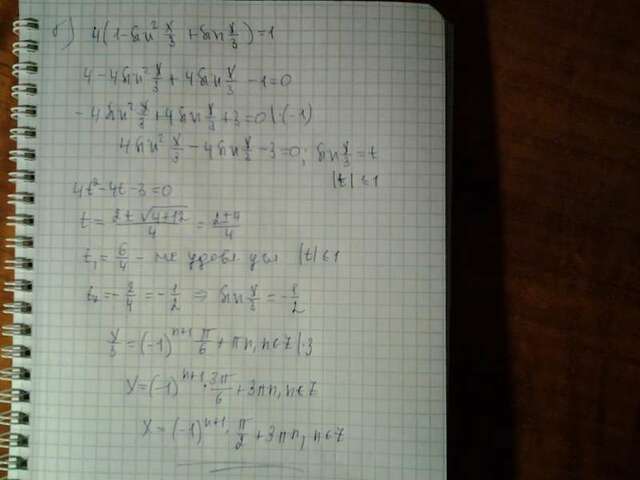 б) 4(1-sin² x/3 + sin x/3) = 1
4-4sin² x/3 + 4sin x/3 - 1 = 0
-4sin² x/3 + 4sin x/3 + 3 = 0 |·(-1)
4sin² x/3 - 4sin x/3 - 3 = 0; sin x/3 = t
|t| ≤ 1
4t² - 4t - 3 = 0
t = (2 ± √(4+12))/4 = (2±4)/4
t₁ = 6/4 - не удовл усл |t| ≤ 1
t₂ = -2/4 = -1/2 ⇒ sin x/3 = -1/2
x/3 = (-1)ⁿ⁺¹ π/6 + πn, n∈Z |·3
x = (-1)ⁿ⁺¹ · 3π/6 + 3πn, n∈Z
x = (-1)ⁿ⁺¹ · π/2 + 3πn, n∈Z